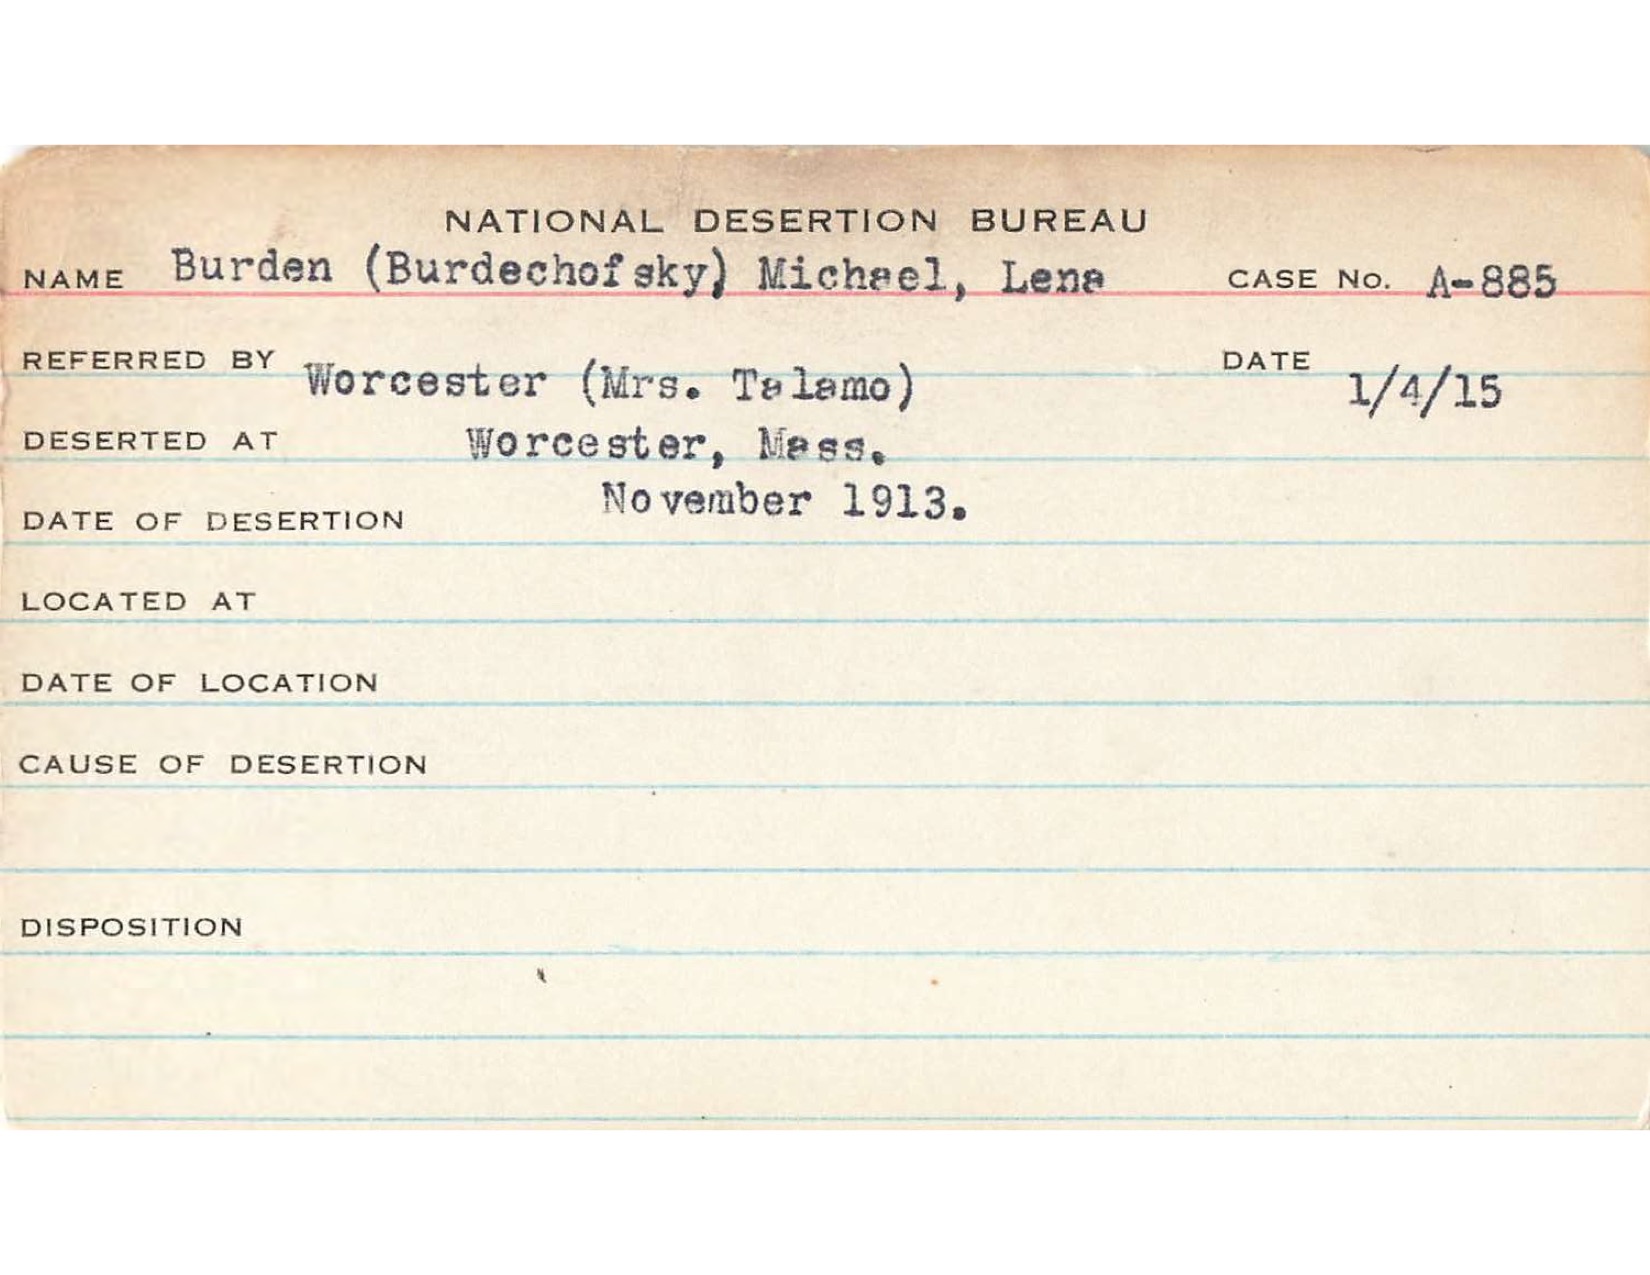 NATIONAL DESERTION BUREAU
NAME Burden (Burdechofsky) Michael, Lena CASE No. A-885
REFERRED BY Worcester (Mrs. Talamo) DATE 1/4/15
DESERTED AT Worcester, Mass.
DATE OF DESERTION November 1913.
LOCATED AT
DATE OF LOCATION
CAUSE OF DESERTION
DISPOSITION